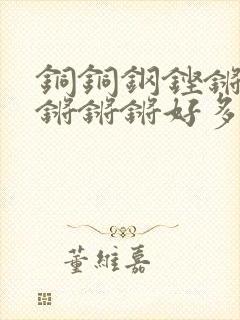 銅銅鋼鏗鏘
鏘鏘鏘好多
董維嘉